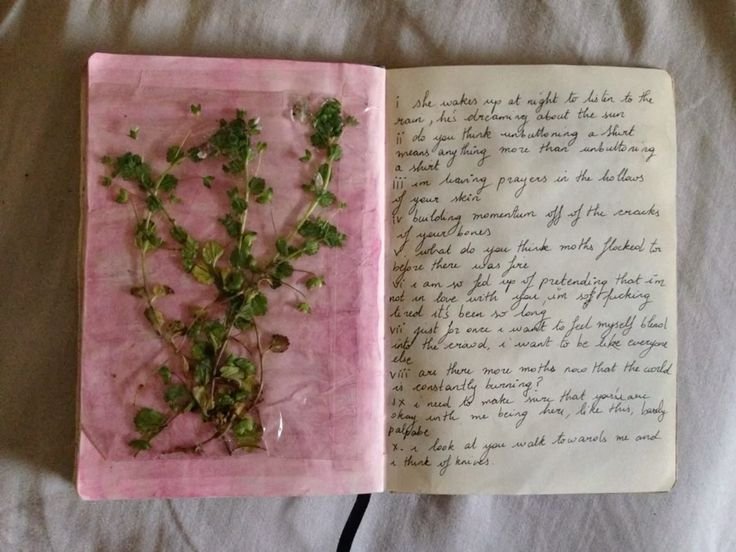 i she wakes up at night to listen to the
rain, he's dreaming about the sun
ii do you think unbuttoning a shirt
means anything more than unbuttoning
a shirt
iii im leaving prayers in the hollows
of your skin
iv building momentum off of the cracks
of your bones
v. what do you think moths flocked to
before there was fire
vi i am so fed up of pretending that i'm
not in love with you, im so fucking
tired it's been so long
vii just for once i want to feel myself blend
into the crowd, i want to be like everyone
else
viii are there more moths now that the world
is constantly burning?
ix i need to make sure that you're
okay with me being here, like this, barely
palpabe
x. i look at you walk towards me and
i think of knives.